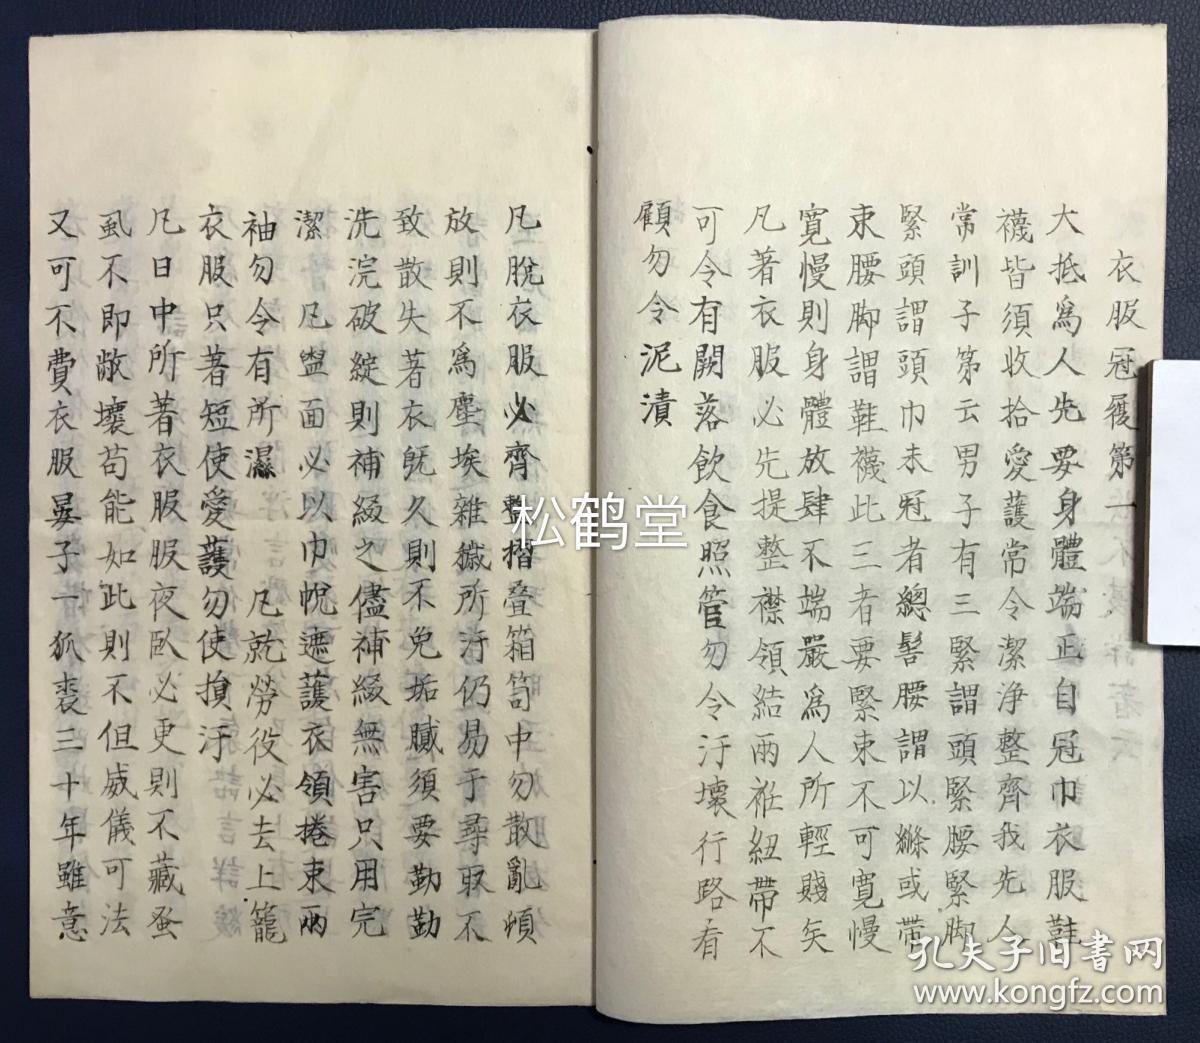 衣服冠履第一
大抵爲人先要身體端正自冠巾衣服鞋
襪皆須收拾愛護常令潔浄整齊我先人
常訓子第云男子有三緊謂頭緊腰緊脚
緊頭謂頭巾未冠者總髻腰謂以縧或帶
束腰脚謂鞋襪此三者要緊束不可寛慢
寛慢則身體放肆不端嚴爲人所輕賤矣
凡著衣服必先提整襟領結兩袵紐帶不
可令有闕落飲食照管勿令汙壞行路看
顧勿令泥漬
凡脫衣服必齊整摺疊箱笥中勿散亂頓
放則不爲塵埃雜穢所汙仍易于尋取不
致散失著衣既久則不免垢膩須要勤勤
洗浣破綻則補綴之儘補綴無害只用完
潔 凡盥面必以巾帨遮護衣領捲束兩
袖勿令有所濕 凡就勞役必去上籠
衣服只著短使愛護勿使損汙
凡日中所著衣服服夜臥必更則不藏蚤
虱不即敝壞苟能如此則不但威儀可法
又可不費衣服晏子一狐裘三十年雖意
松鹤堂
孔夫子旧书网
www.kongfz.com